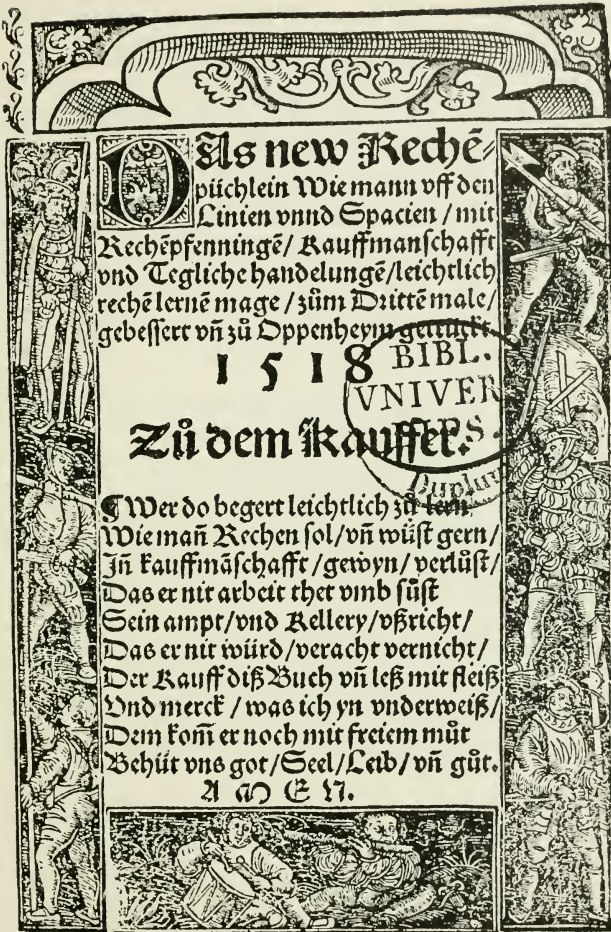 DAs new Rechē-
püchlein Wie mann vff den
Linien vnnd Spacien / mit
Rechēpfenningē / Kauffmanschafft
vnd Tegliche handelungē / leichtlich
rechē lernē mage / zům Drittē male /
gebessert vñ zů Oppenheym getruckt.
1518
BIBL.
VNIVER
Zů dem Kauffer.
¶ Wer do begert leichtlich zů lern
Wie mañ Rechen sol / vñ wüst gern /
Jñ kauffmāschafft / gewyn / verlůst /
Das er nit arbeit thet vmb süst
Sein ampt / vnd Kellery / vßricht /
Das er nit würd / veracht vernicht /
Der Kauff diß Buch vñ leß mit fleiß
Vnd merck / was ich yn vnderweiß /
Dem kom̄ er noch mit freiem můt
Behüt vns got / Seel / Leib / vñ gůt.
A M E N.